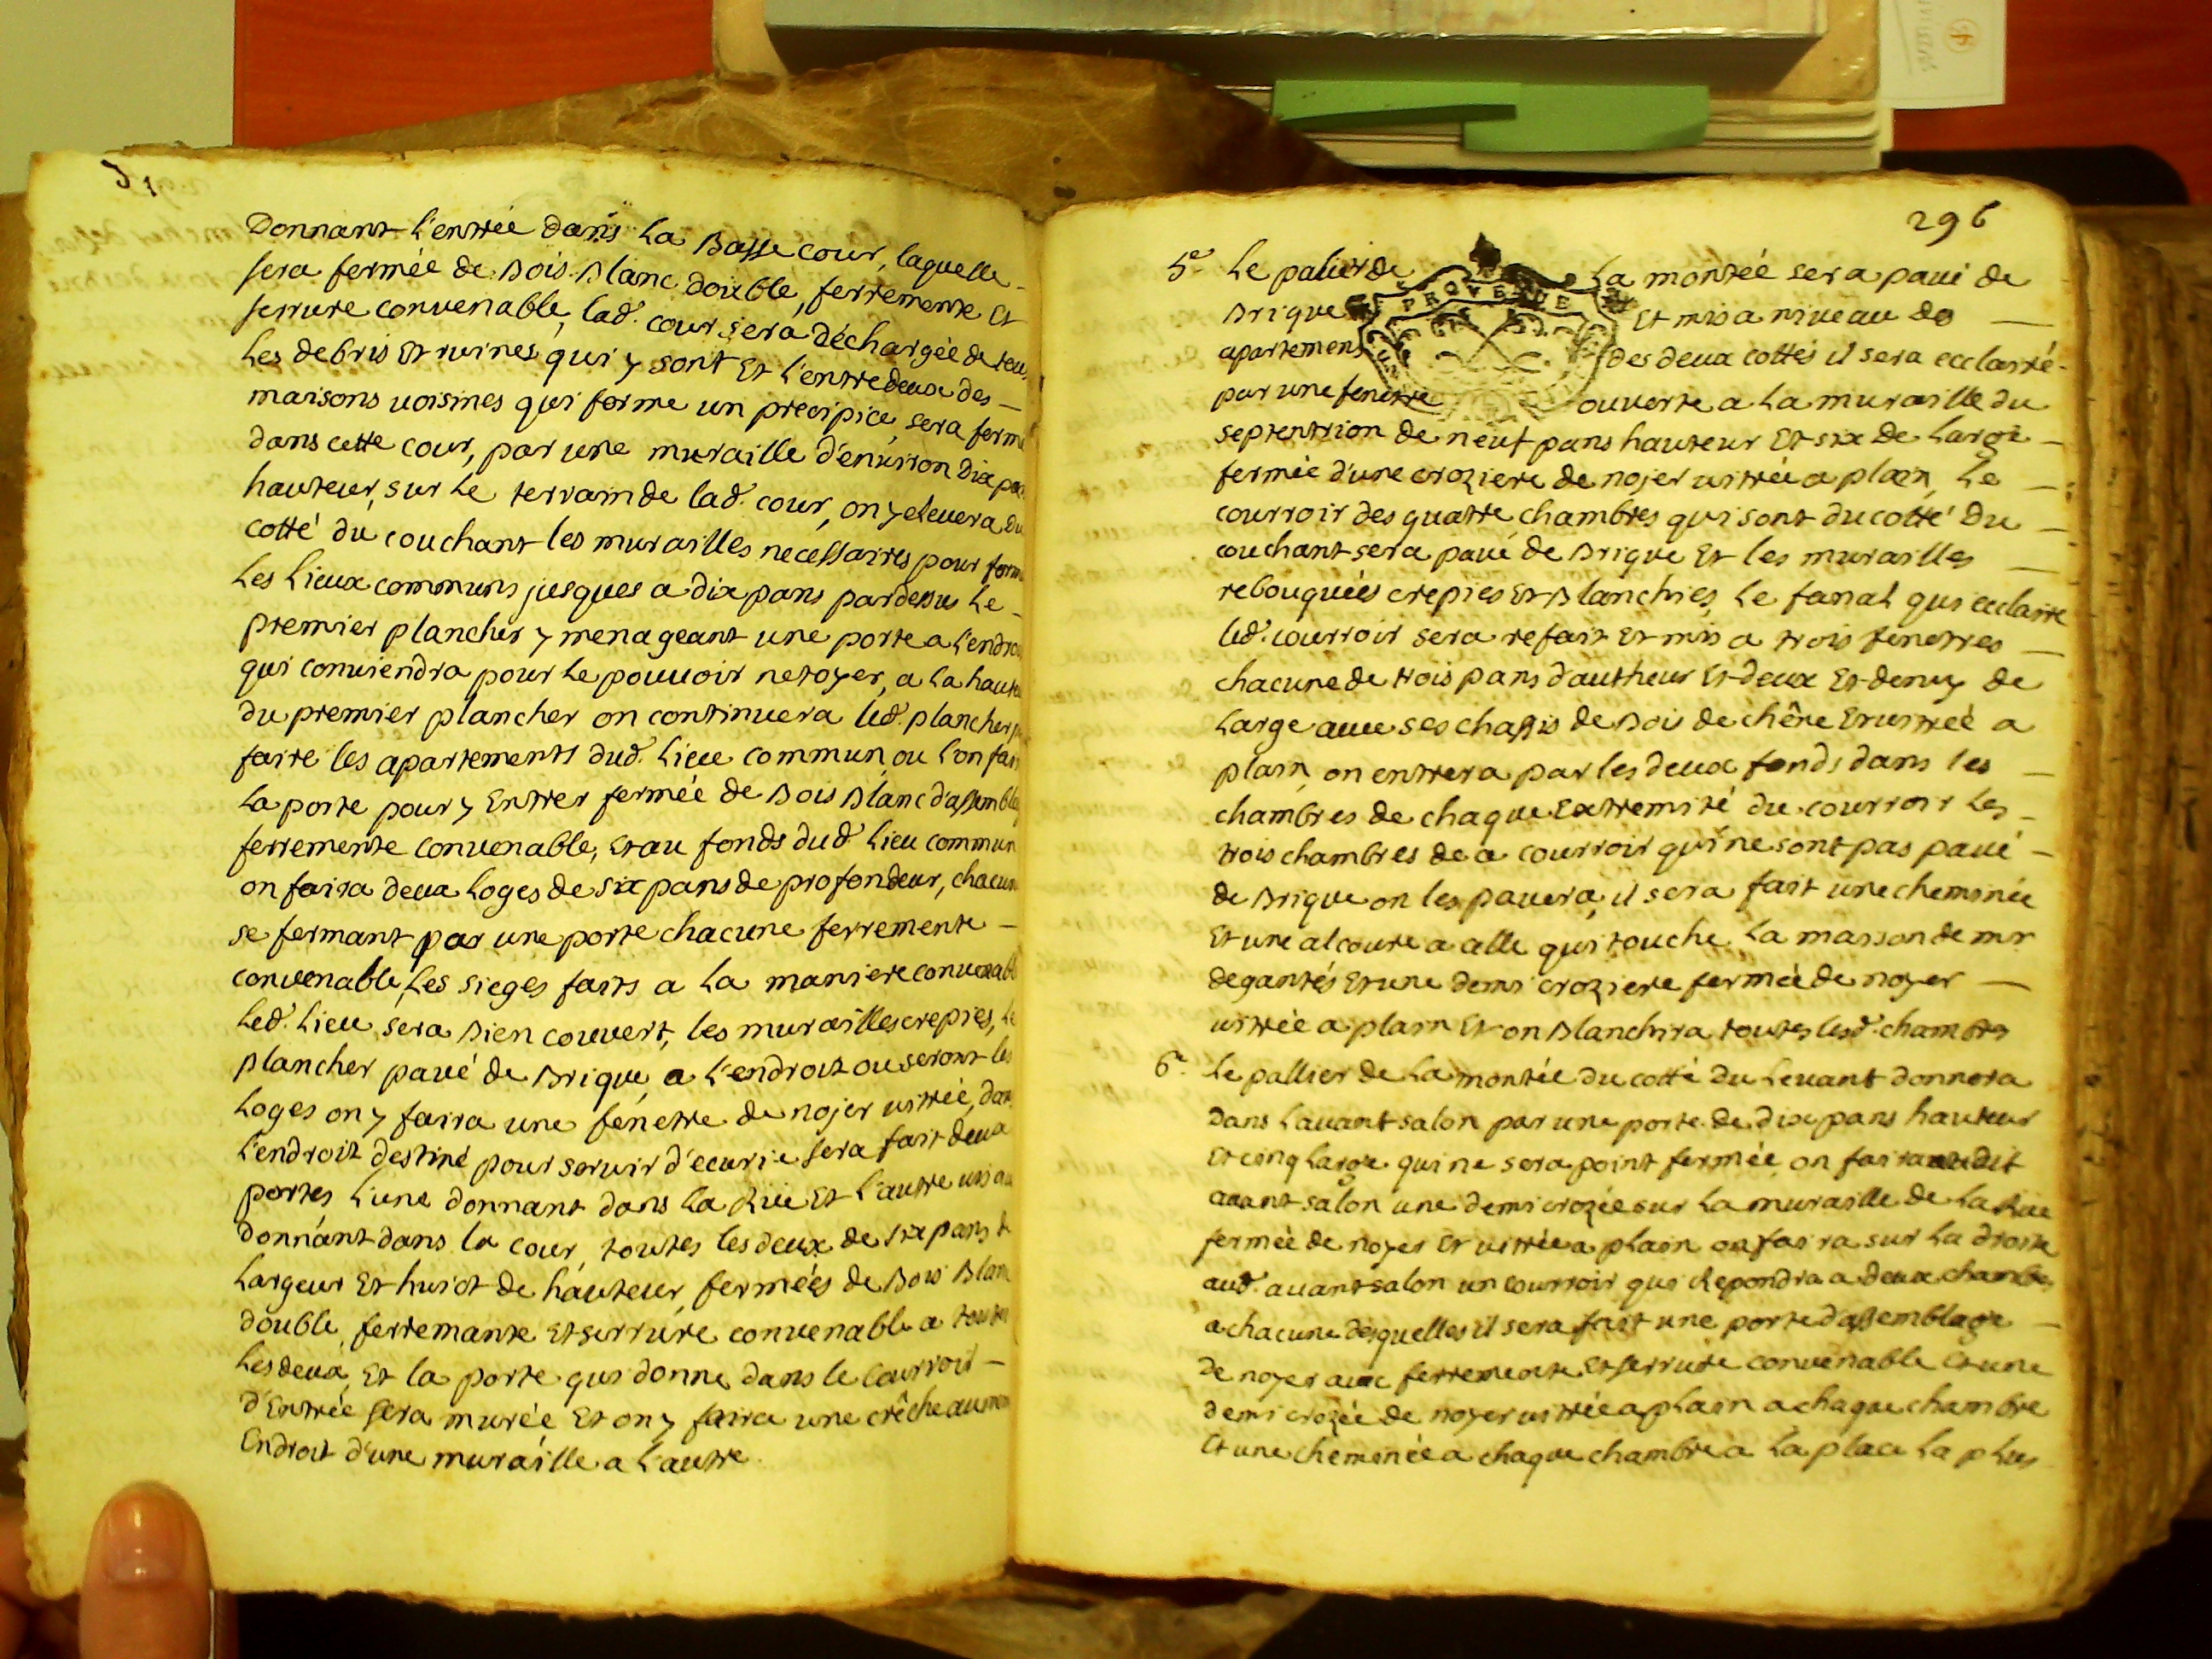 Donnant l'entrée dans La Basse cour, laquelle
sera fermée de Bois Blanc double, ferremente Et
serrure convenable, lad. cour sera déchargée de tous
Les debris Et ruines qui y sont Et L'entredeux des
maisons voisines qui forme un precipice, sera fermé
dans cette cour, par une muraille d'environ Dix pans
hauteur, sur Le terrain de lad. cour, on y elevera du
cotté du couchant les murailles necessaires pour form
Les Lieux communs jusques a dix pans par dessus Le
premier plancher y menageant une porte a L'endroi
qui conviendra pour Le pouvoir netoyer, a La haute
du premier plancher on continuera led. plancher
faire les apartements dud. Lieu commun, ou L'on fair
La porte pour y Entrer fermée de Bois Blanc d'assembla
ferremente convenable, Et au fonds dud. Lieu commun
on faira deux Loges de six pans de profondeur, chacune
se fermant par une porte chacune ferremente
convenable, Les sieges faits a La maniere convenabl
Led. Lieu sera Bien couvert, les murailles crepies, Le
plancher pavé de Brique, a L'endroit ou seront les
Loges on y faira une fenetre de nojer vitrée, dans
L'endroit destiné pour servir d'ecurie sera fait deux
portes L'une donnant dans La Rüe Et L'autre vis a
donnant dans la cour, toutes les deux de six pans
Largeur Et huict de hauteur, fermées de Bois Blanc
double, ferremante Et serrure convenable a toute
Les deux, Et la porte qui donne dans le Courroir
d'Entrée sera murée Et on y faira une crêche au mem
Endroit d'une muraille a L'autre
296
PROVENCE
5e Le palier de La montée sera pavé de
Brique Et mis a niveau des
apartemens des deux cottés il sera eclairé
par une fenetre ouverte a La muraille du
septentrion de neuf pans hauteur Et six de Large
fermée d'une croziere de nojer vitrée a plain, Le
courroir des quatre chambres qui sont du cotté du
couchant sera pavé de Brique Et les murailles
rebouquées crepies Et Blanchies, Le fanal qui eclaire
led. courroir sera refait Et mis a trois fenetres
chacune de trois pans d'autheur Et deux Et demy de
Large avec ses chassis de Bois de chêne Et vitreé a
plain, on entrera par les deux fonds dans les
chambres de chaque Extremité du courroir Les
trois chambres de a courroir qui ne sont pas pavé
de Brique on les pavera, il sera fait une cheminée
Et une alcoure a celle qui touche La maison de mr
degantés Et une demi croziere fermée de noyer
vitrée a plain Et on Blanchira toutes lesd. chambres
6e Le pallier de La montée du cotté du Levant donnera
Dans L'avant salon par une porte de dix pans hauteur
Et cinq Large qui ne sera point fermée, on faira audit
avant salon une demi crozée sur La muraille de La Rue
fermée de noyer Et vitrée a plain on faira sur La droite
aud. avant salon un courroir qui Repondra a deux chambres
a chacune desquelles il sera fait une porte d'assemblage
de noyer avec ferremente Et serrure convenable Et une
demi crozée de noyer vitrée a plain a chaque chambre
Et une cheminée a chaque chambre a La place La plus